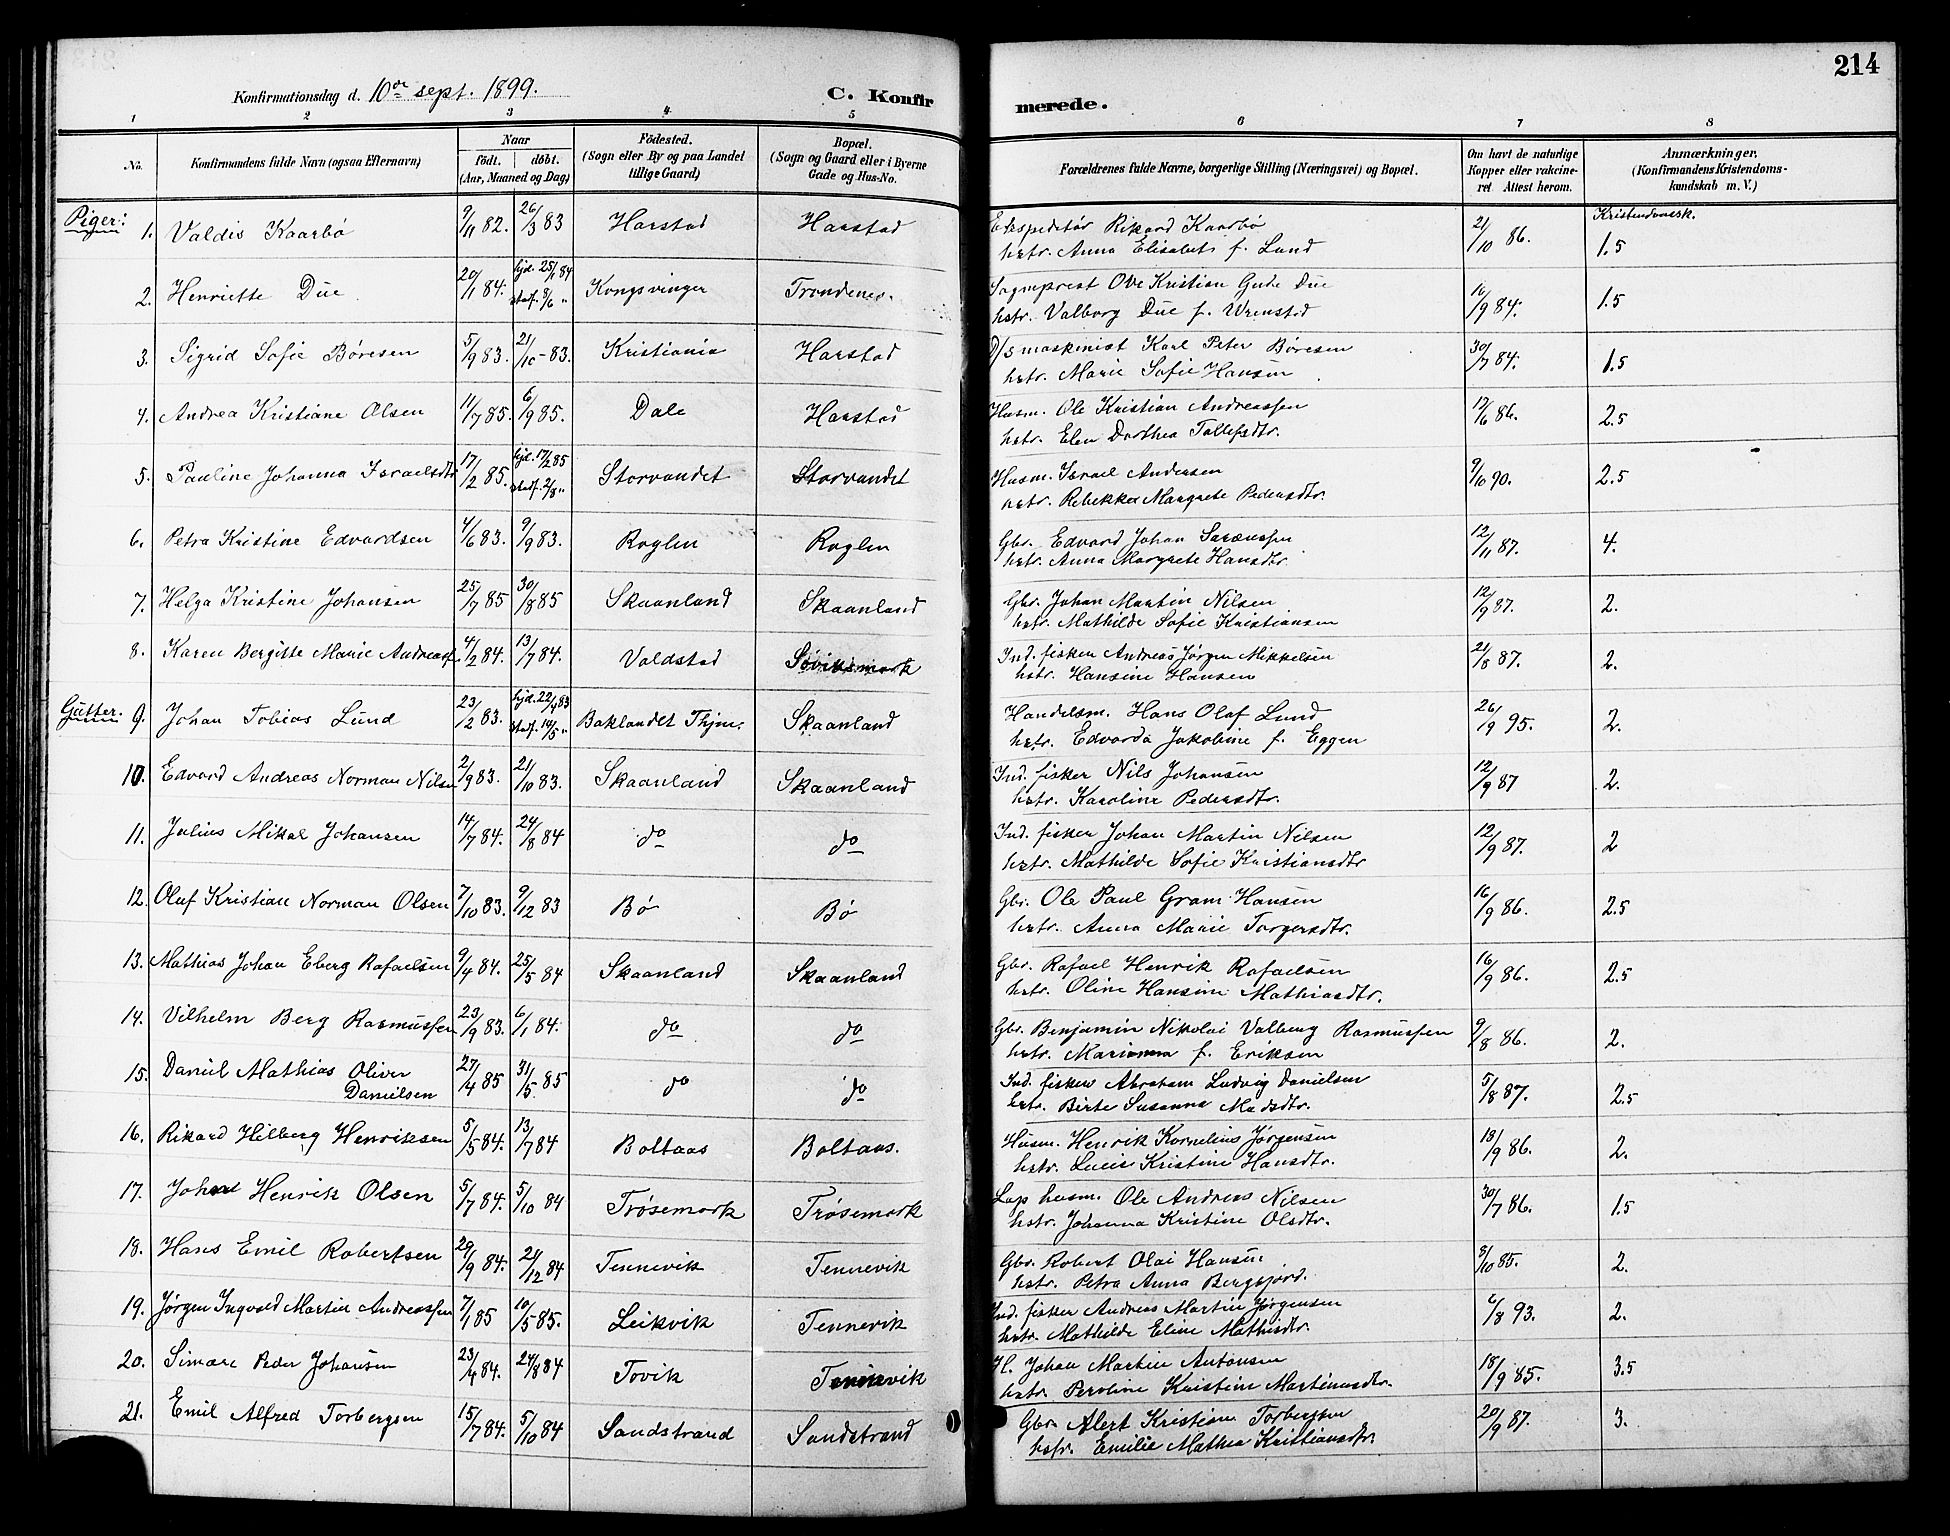 214
Konfirmationsdag d. 10de sept. 1899.
C. Konfirmerede.
1 2 3 4 5 6 7 8
No.
Konfirmandens fulde Navn (ogsaa Efternavn)
Naar
födt. döbt.
(Aar, Maaned og Dag)
Födested.
(Sogn eller By og paa Landet
tillige Gaard)
Bopæl.
(Sogn og Gaard eller i Byerne
Gade og Hus-No.
Forældrenes fulde Navne, borgerlige Stilling (Næringsvei) og Bopæl.
Om havt de naturlige
Kopper eller vakcine-
ret. Attest herom.
Anmærkninger.
(Konfirmandens Kristendoms-
kundskab m. V.)
Piger:
Kristendomsk.
1. Valdis Kaarbø 9/11 82. 26/3 83 Harstad Harstad Ekspeditør Rikard Kaarbø 21/10 86. 1.5
hstr. Anna Elisabet f. Lund
2. Henriette Due 20/1 84. hjd. 25/1 84 Kongsvinger Trondenes. Sogneprest Ove Kristian Gude Due 16/9 84. 1.5
stadf. 8/6 " hstr. Valborg Due f. Wrenstad
3. Sigrid Sofie Børesen 5/9 83. 21/10 - 83. Kristiania Harstad D/s maskinist Karl Peter Børesen 30/7 84. 1.5
hstr. Marie Sofie Hansen
4. Andrea Kristiane Olsen 11/7 85. 6/9 85. Dale Harstad Husm. Ole Kristian Andreassen 12/6 86. 2.5
hstr. Elen Dorthea Tollefsdtr.
5. Pauline Johanna Israelsdtr 17/2 85. hjd. 17/2 85 Storvandet Storvandet Husm. Israel Andersen 9/10 90. 2.5
stadf. 2/8 " hstr. Rebekka Margrete Pedersdtr.
6. Petra Kristine Edvardsen 4/6 83. 9/9 83. Roglen Roglen Gbr. Edvard Johan Sørenssen 12/11 87. 4.
hstr. Anna Margrete Hansdtr
7. Helga Kristine Johansen 25/7 85 30/8 85 Skaanland Skaanland Gbr. Johan Martin Nilsen 12/9 87. 2.
hstr. Mathilde Sofie Kristiansen
8. Karen Bergitte Marie Andreass. 4/2 84. 13/7 84. Voldstad Søviksmark Ind. fisker Andreas Jørgen Mikkelsen 21/8 87. 2.
hstr. Hansine Hansen
Gutter:
9. Johan Tobias Lund 23/2 83. hjd. 22/4 83 Baklandet Thjm. Skaanland Handelsm. Hans Olaf Lund 26/9 95. 2.
stadf. 14/5 " hstr. Edvarda Jakobine f. Eggen
10. Edvard Andreas Norman Nilsen 2/9 83. 21/10 83. Skaanland Skaanland Ind. fisker Nils Johansen 12/9 87 2.
hstr. Karoline Pedersdtr.
11. Julius Mikal Johansen 14/7 84. 24/8 84 do do Ind. fisker Johan Martin Nilsen 12/9 87. 2
hstr. Mathilde Sofie Kristiansdtr
12. Olaf Kristian Norman Olsen 7/10 83. 9/12 83 Bø Bø Gbr. Ole Paul Gram Hansen 16/9 86. 2.5
hstr. Anna Marie Torgersdtr.
13. Mathias Johan Eberg Rafaelsen 9/4 84. 25/5 84 Skaanland Skaanland Gbr. Rafael Henrik Rafaelsen 16/9 86. 2.5
hstr. Oline Hansine Mathiasdtr.
14. Vilhelm Berg Rasmussen 23/9 83. 6/1 84. do do Gbr. Benjamin Nikolai Valberg Rasmussen 9/8 86. 2.
hstr. Marianna f. Eriksen
15. Daniel Mathias Oliver 27/4 85 31/5 85 do do Ind. fisker Abraham Ludvig Danielsen 5/8 87. 2.5
Danielsen hstr. Birte Susanna Madsdtr.
16. Rikard Hilberg Henriksen 5/5 84. 13/7 84 Boltaas Boltaas. Husm. Henrik Kornelius Jørgensen 18/9 86. 2.
hstr. Lucie Kristine Hansdtr.
17. Johan Henrik Olsen 5/7 84. 5/10 84 Trøsemark Trøsemark Lap husm. Ole Andreas Nilsen 30/7 86. 1.5
hstr. Johanna Kristine Olsdtr.
18. Hans Emil Robertsen 29/9 84. 21/12 84 Tennevik Tennevik Gbr. Robert Olai Hansen 8/10 85. 2.
hstr. Petra Anna Bergsfjord.
19. Jørgen Ingvald Martin Andreassen 7/1 85 10/5 85. Leikvik Tennevik Ind. fisker Andreas Martin Jørgensen 6/8 93. 2.
hstr. Mathilde Eline Mathisdtr.
20. Simon Peder Johansen 23/4 84. 24/8 84 Tovik Tennevik H. Johan Martin Antonsen 18/9 85. 3.5
hstr. Peroline Kristine Martinusdtr.
21. Emil Alfred Torbergsen 15/7 84. 5/10 84 Sandstrand Sandstrand Gbr. Alert Kristian Torbergsen 20/9 87. 3.
hstr. Emilie Mathea Kristiansdtr.